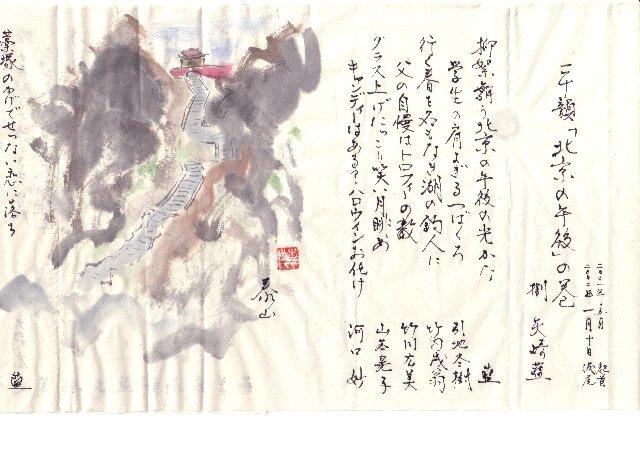 二十韻「北京の午後」の巻
起首
一月十日 満尾
捌 矢崎藍
柳絮舞う北京の午後の光かな 藍
学生の肩よぎるつばくろ 引地冬樹
行く春を名もなき湖の釣人に 竹内茂翁
父の自慢はトロフィーの数 竹川
グラス上げにっこり笑い月眺め 山本 子
キャンディーはあるぞハロウィンお化け 河口 妙
泰山
藁塚のかげでせつない恋に落ち 藍